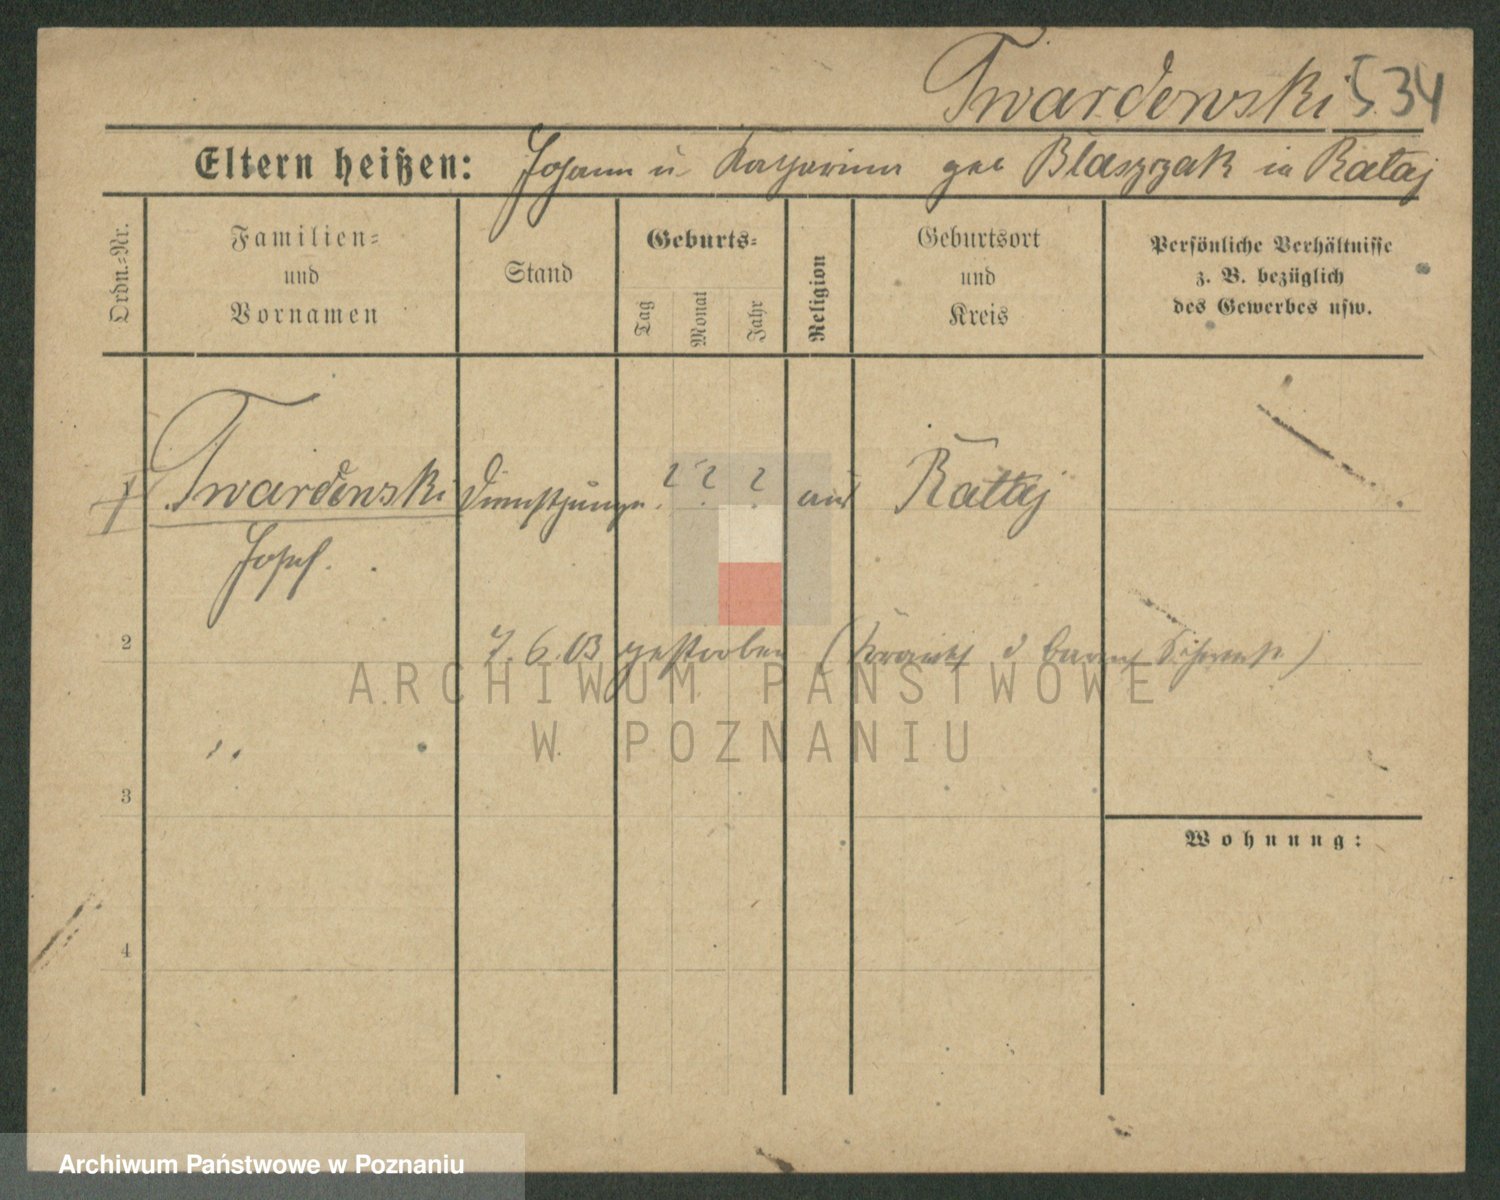 Twardowski 534
Eltern heißen: Johann u Katharina geb Blaszzak in Rataj
Ordn.=Nr.
Familien=
und
Vornamen
Stand
Geburts=
Tag
Monat
Jahr
Religion
Geburtsort
und
Kreis
Persönliche Verhältnisse
z. B. bezüglich
des Gewerbes usw.
Twardowski Dienstjunge ? ? ? aus Rattaj
Josef.
2
7. 6. 03 gestorben (
ARCHIWUM PAŃSTWOWE
W POZNANIU
3
Wohnung:
4
Archiwum Państwowe w Poznaniu